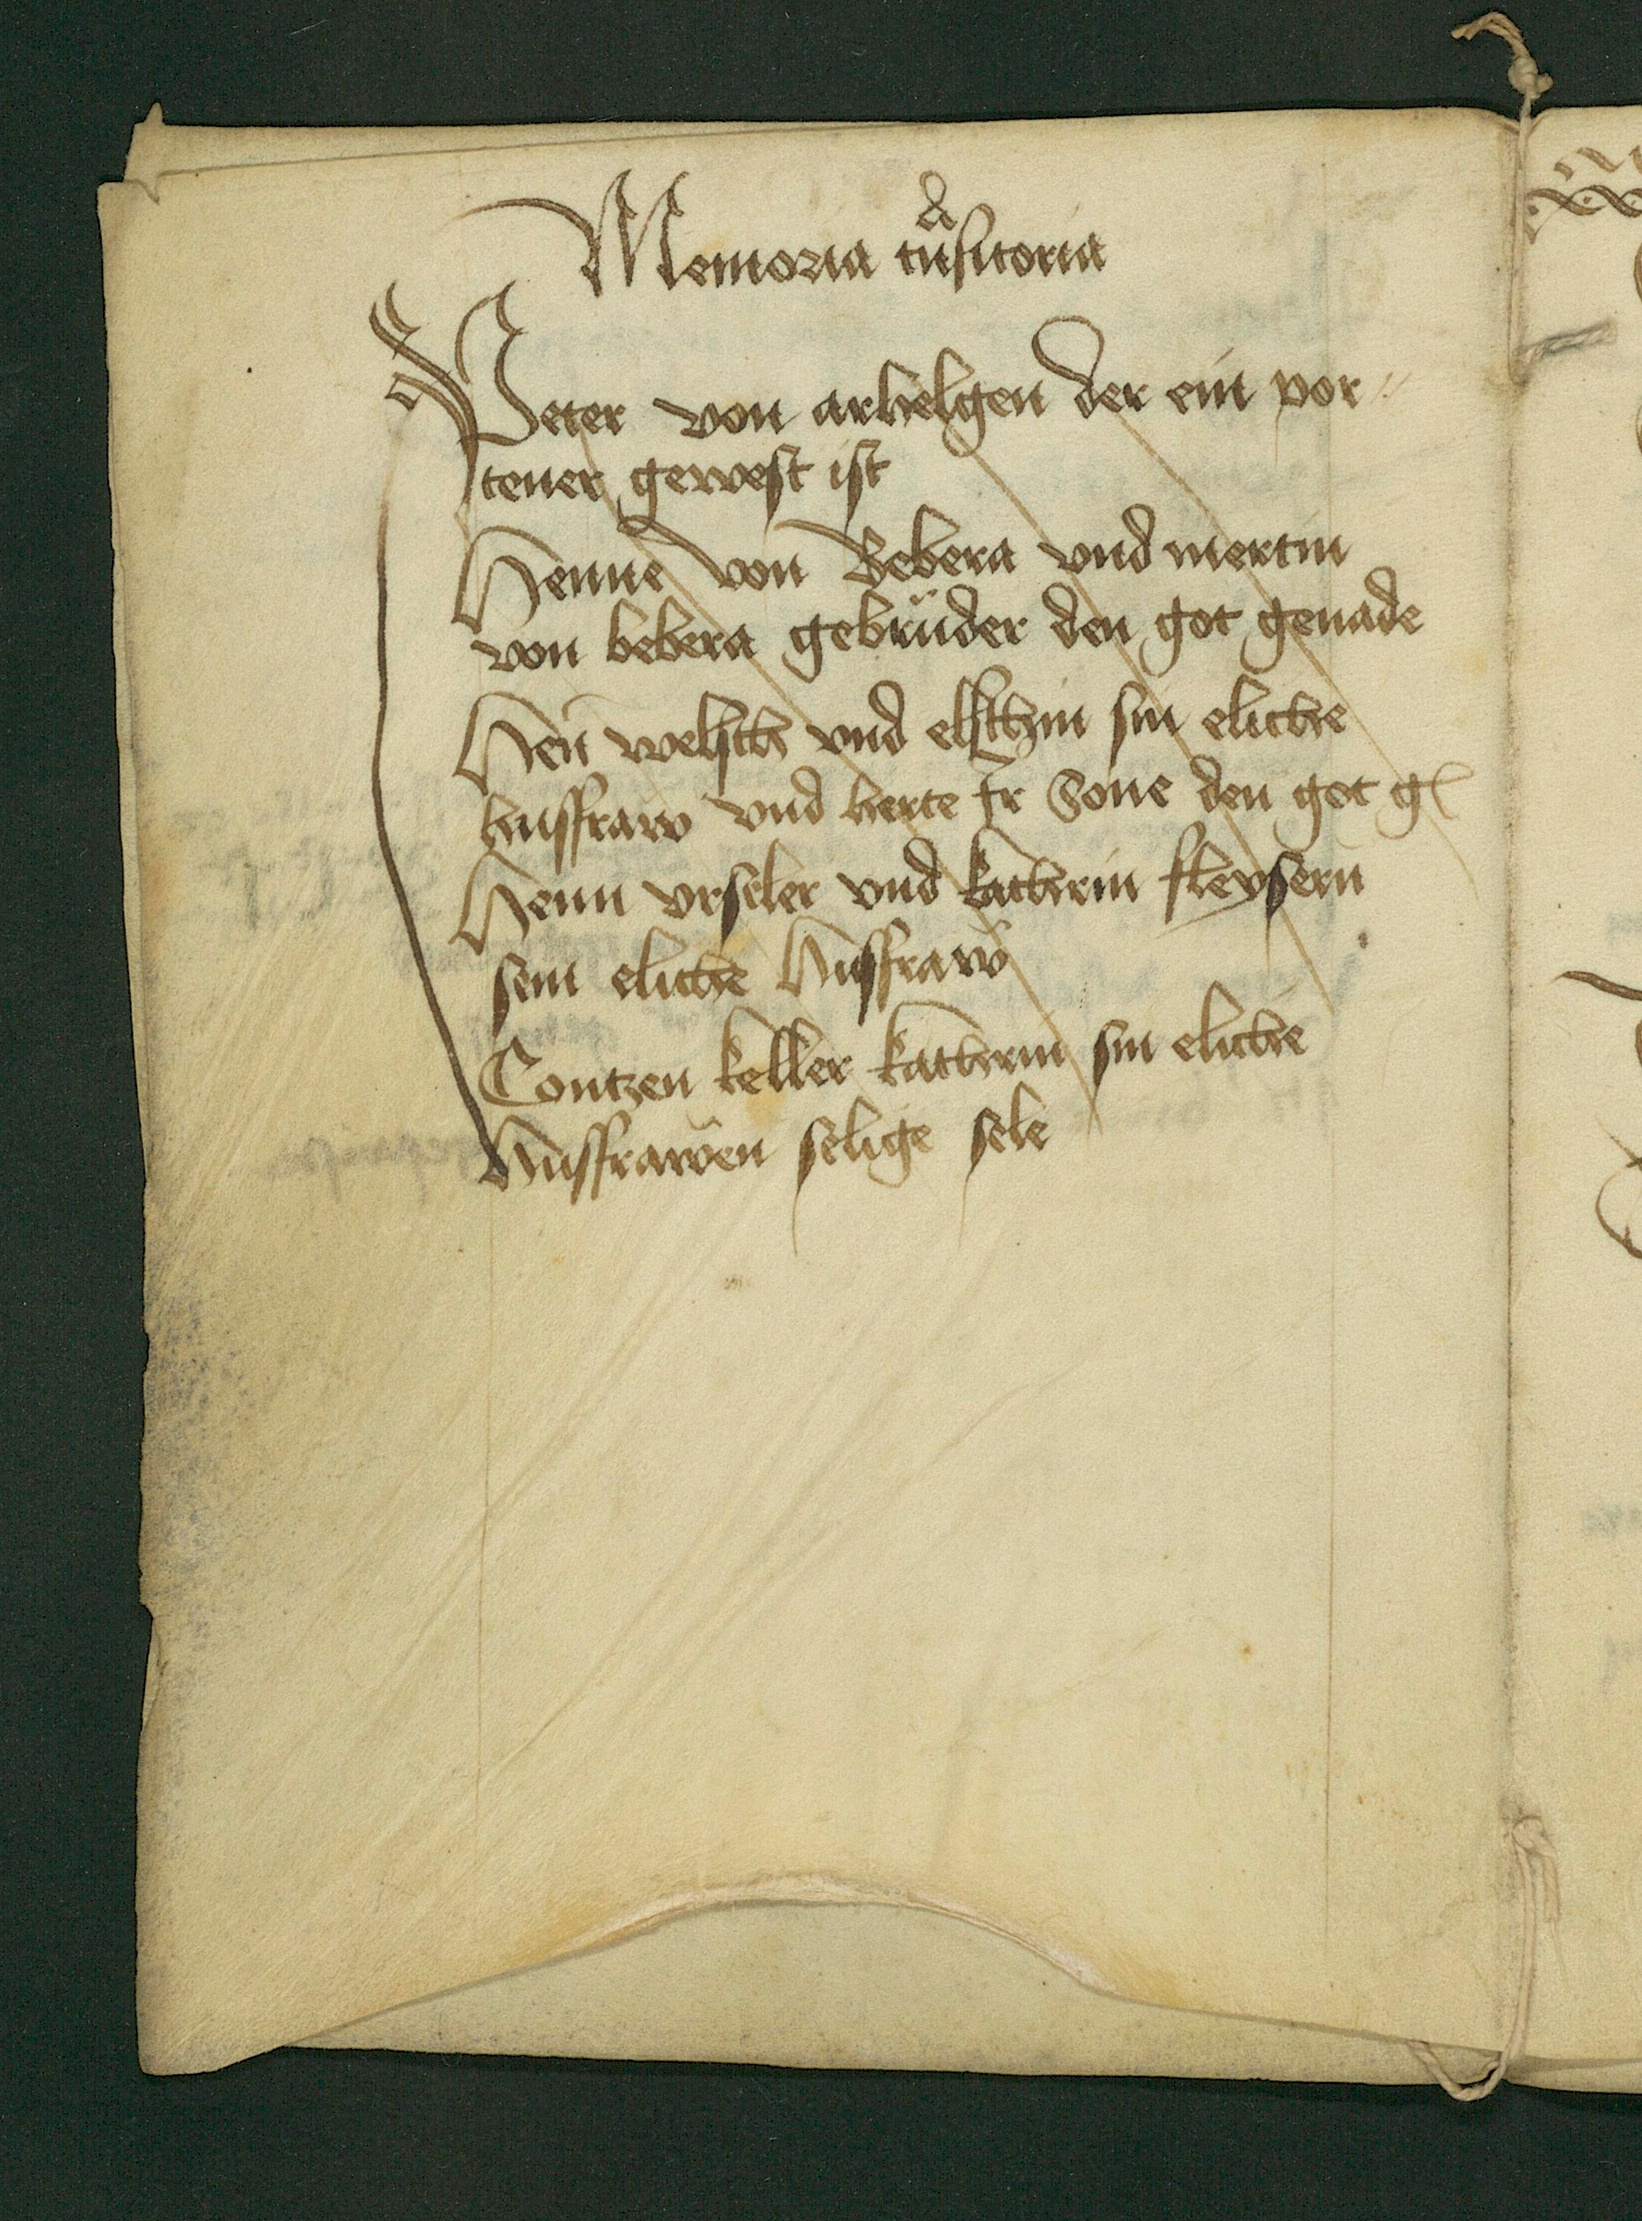 Memoria tᵃnsitoria
Peter von arhelgen der ein por⸗
tener gewest ist
Henne von Bebera vnd mertin
von bebera gebrüder den got genade
Hen welsch vnd elschin sin eliche
husffraw vnd herte ir Sone den got g
Henn vrseler vnd katherin fleysern
sein eliche Husffraw
Contzen keller katherin sin eliche
Husffrawen selige sele